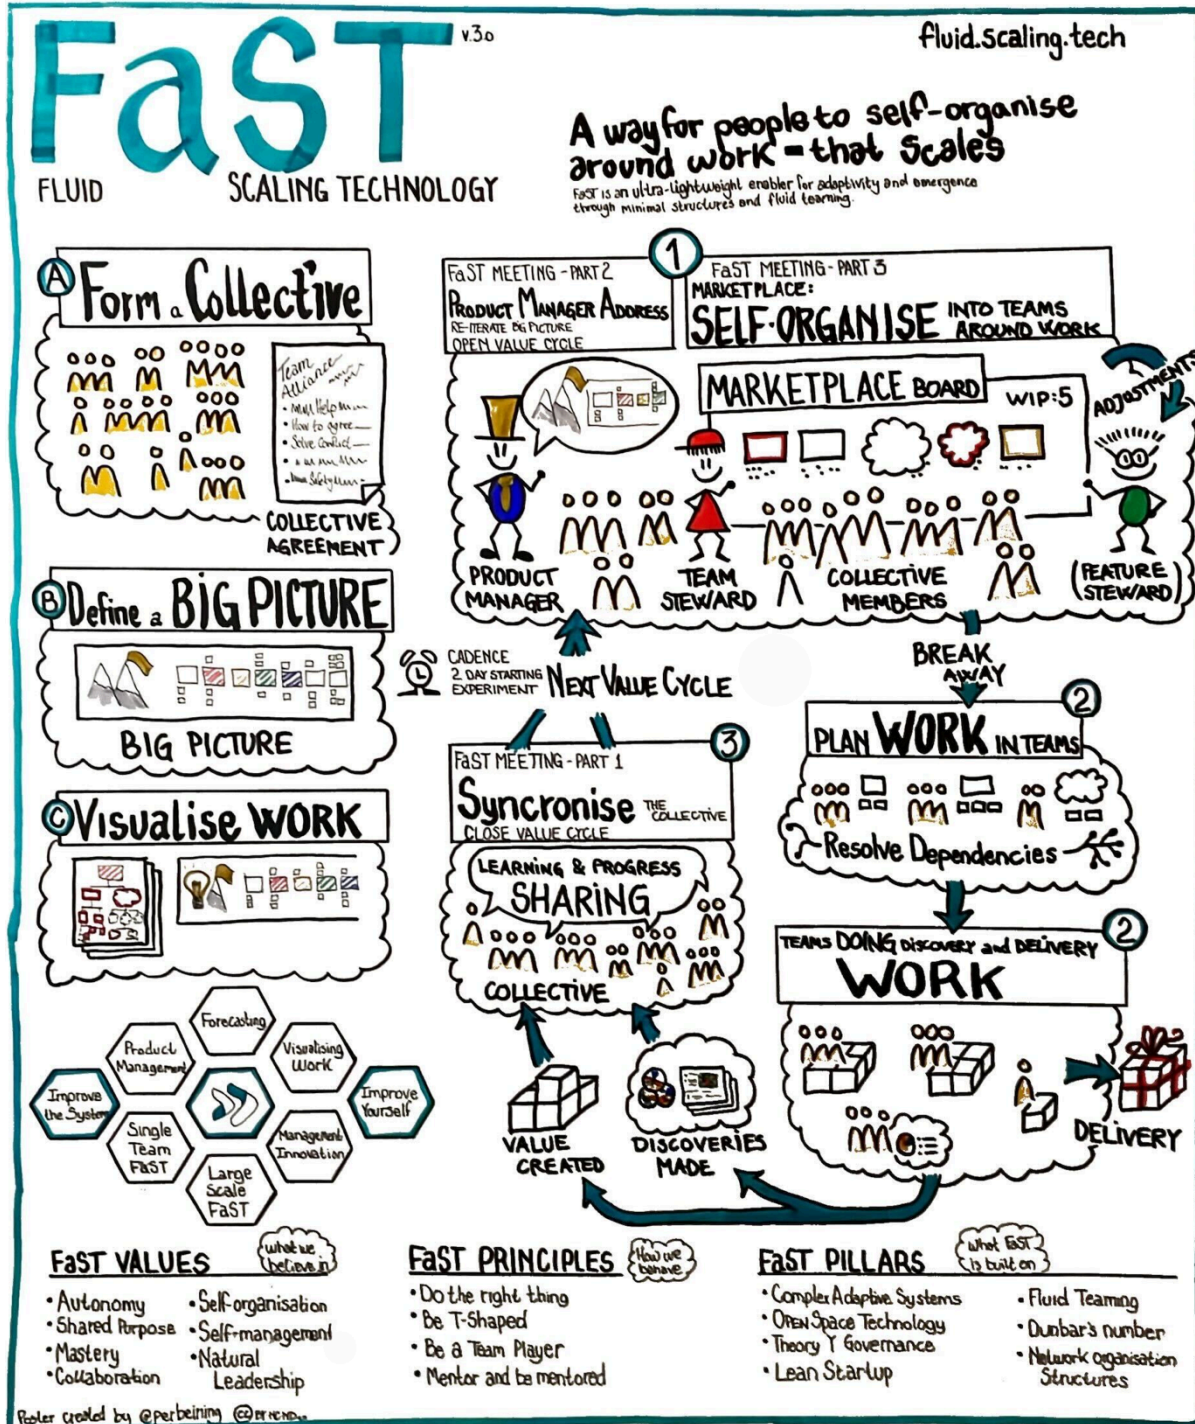 FaST
v.3.0
fluid.scaling.tech
FLUID SCALING TECHNOLOGY
A way for people to self-organise
around work - that scales
FaST is an ultra-lightweight enabler for adaptivity and emergence
through minimal structures and fluid teaming.
A
Form a Collective
Team
Alliance
How to agree
Solve conflict
COLLECTIVE
AGREEMENT
B
Define a BIG PICTURE
BIG PICTURE
C
Visualise WORK
1
FaST MEETING - PART 2
PRODUCT MANAGER ADDRESS
RE-ITERATE BIG PICTURE
OPEN VALUE CYCLE
FaST MEETING - PART 3
MARKETPLACE:
SELF-ORGANISE INTO TEAMS
AROUND WORK
MARKETPLACE BOARD
WIP:5
ADJUSTMENTS
PRODUCT
MANAGER
TEAM
STEWARD
COLLECTIVE
MEMBERS
(FEATURE
STEWARD)
BREAK
AWAY
CADENCE
2 DAY STARTING
EXPERIMENT
NEXT VALUE CYCLE
2
PLAN WORK IN TEAMS
Resolve Dependencies
3
FaST MEETING - PART 1
Syncronise THE
COLLECTIVE
CLOSE VALUE CYCLE
LEARNING & PROGRESS
SHARING
COLLECTIVE
2
TEAMS DOING DISCOVERY and DELIVERY
WORK
VALUE
CREATED
DISCOVERIES
MADE
DELIVERY
Forecasting
Product
Management
Visualising
Work
Improve
the System
Improve
Yourself
Single
Team
FaST
Management
Innovation
Large
Scale
FaST
FaST VALUES
what we
believe in
• Autonomy
• Shared Purpose
• Mastery
• Collaboration
• Self-organisation
• Self-management
• Natural
Leadership
FaST PRINCIPLES
How we
behave
• Do the right thing
• Be T-Shaped
• Be a Team Player
• Mentor and be mentored
FaST PILLARS
What FaST
is built on
• Complex Adaptive Systems
• OPEN Space Technology
• Theory Y Governance
• Lean Startup
• Fluid Teaming
• Dunbar's number
• Network organisation
Structures
Poster created by @perbeining